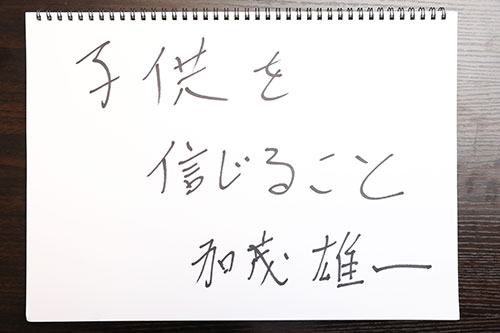 子供を
信じること
加茂雄一